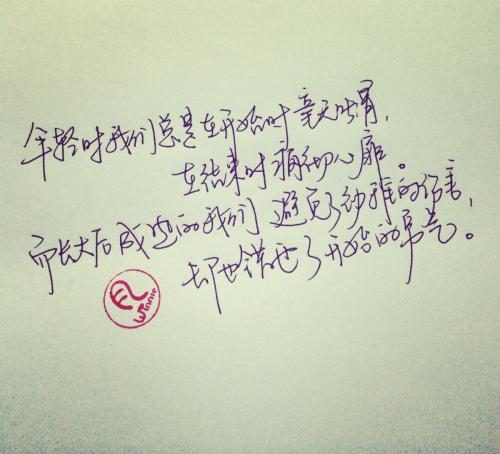 年轻时我们总是在开始时毫无所谓,
在结束时痛彻心扉。
而长大后成熟的我们避免了幼稚的伤害,
却也错过了开始的勇气。
Winnie